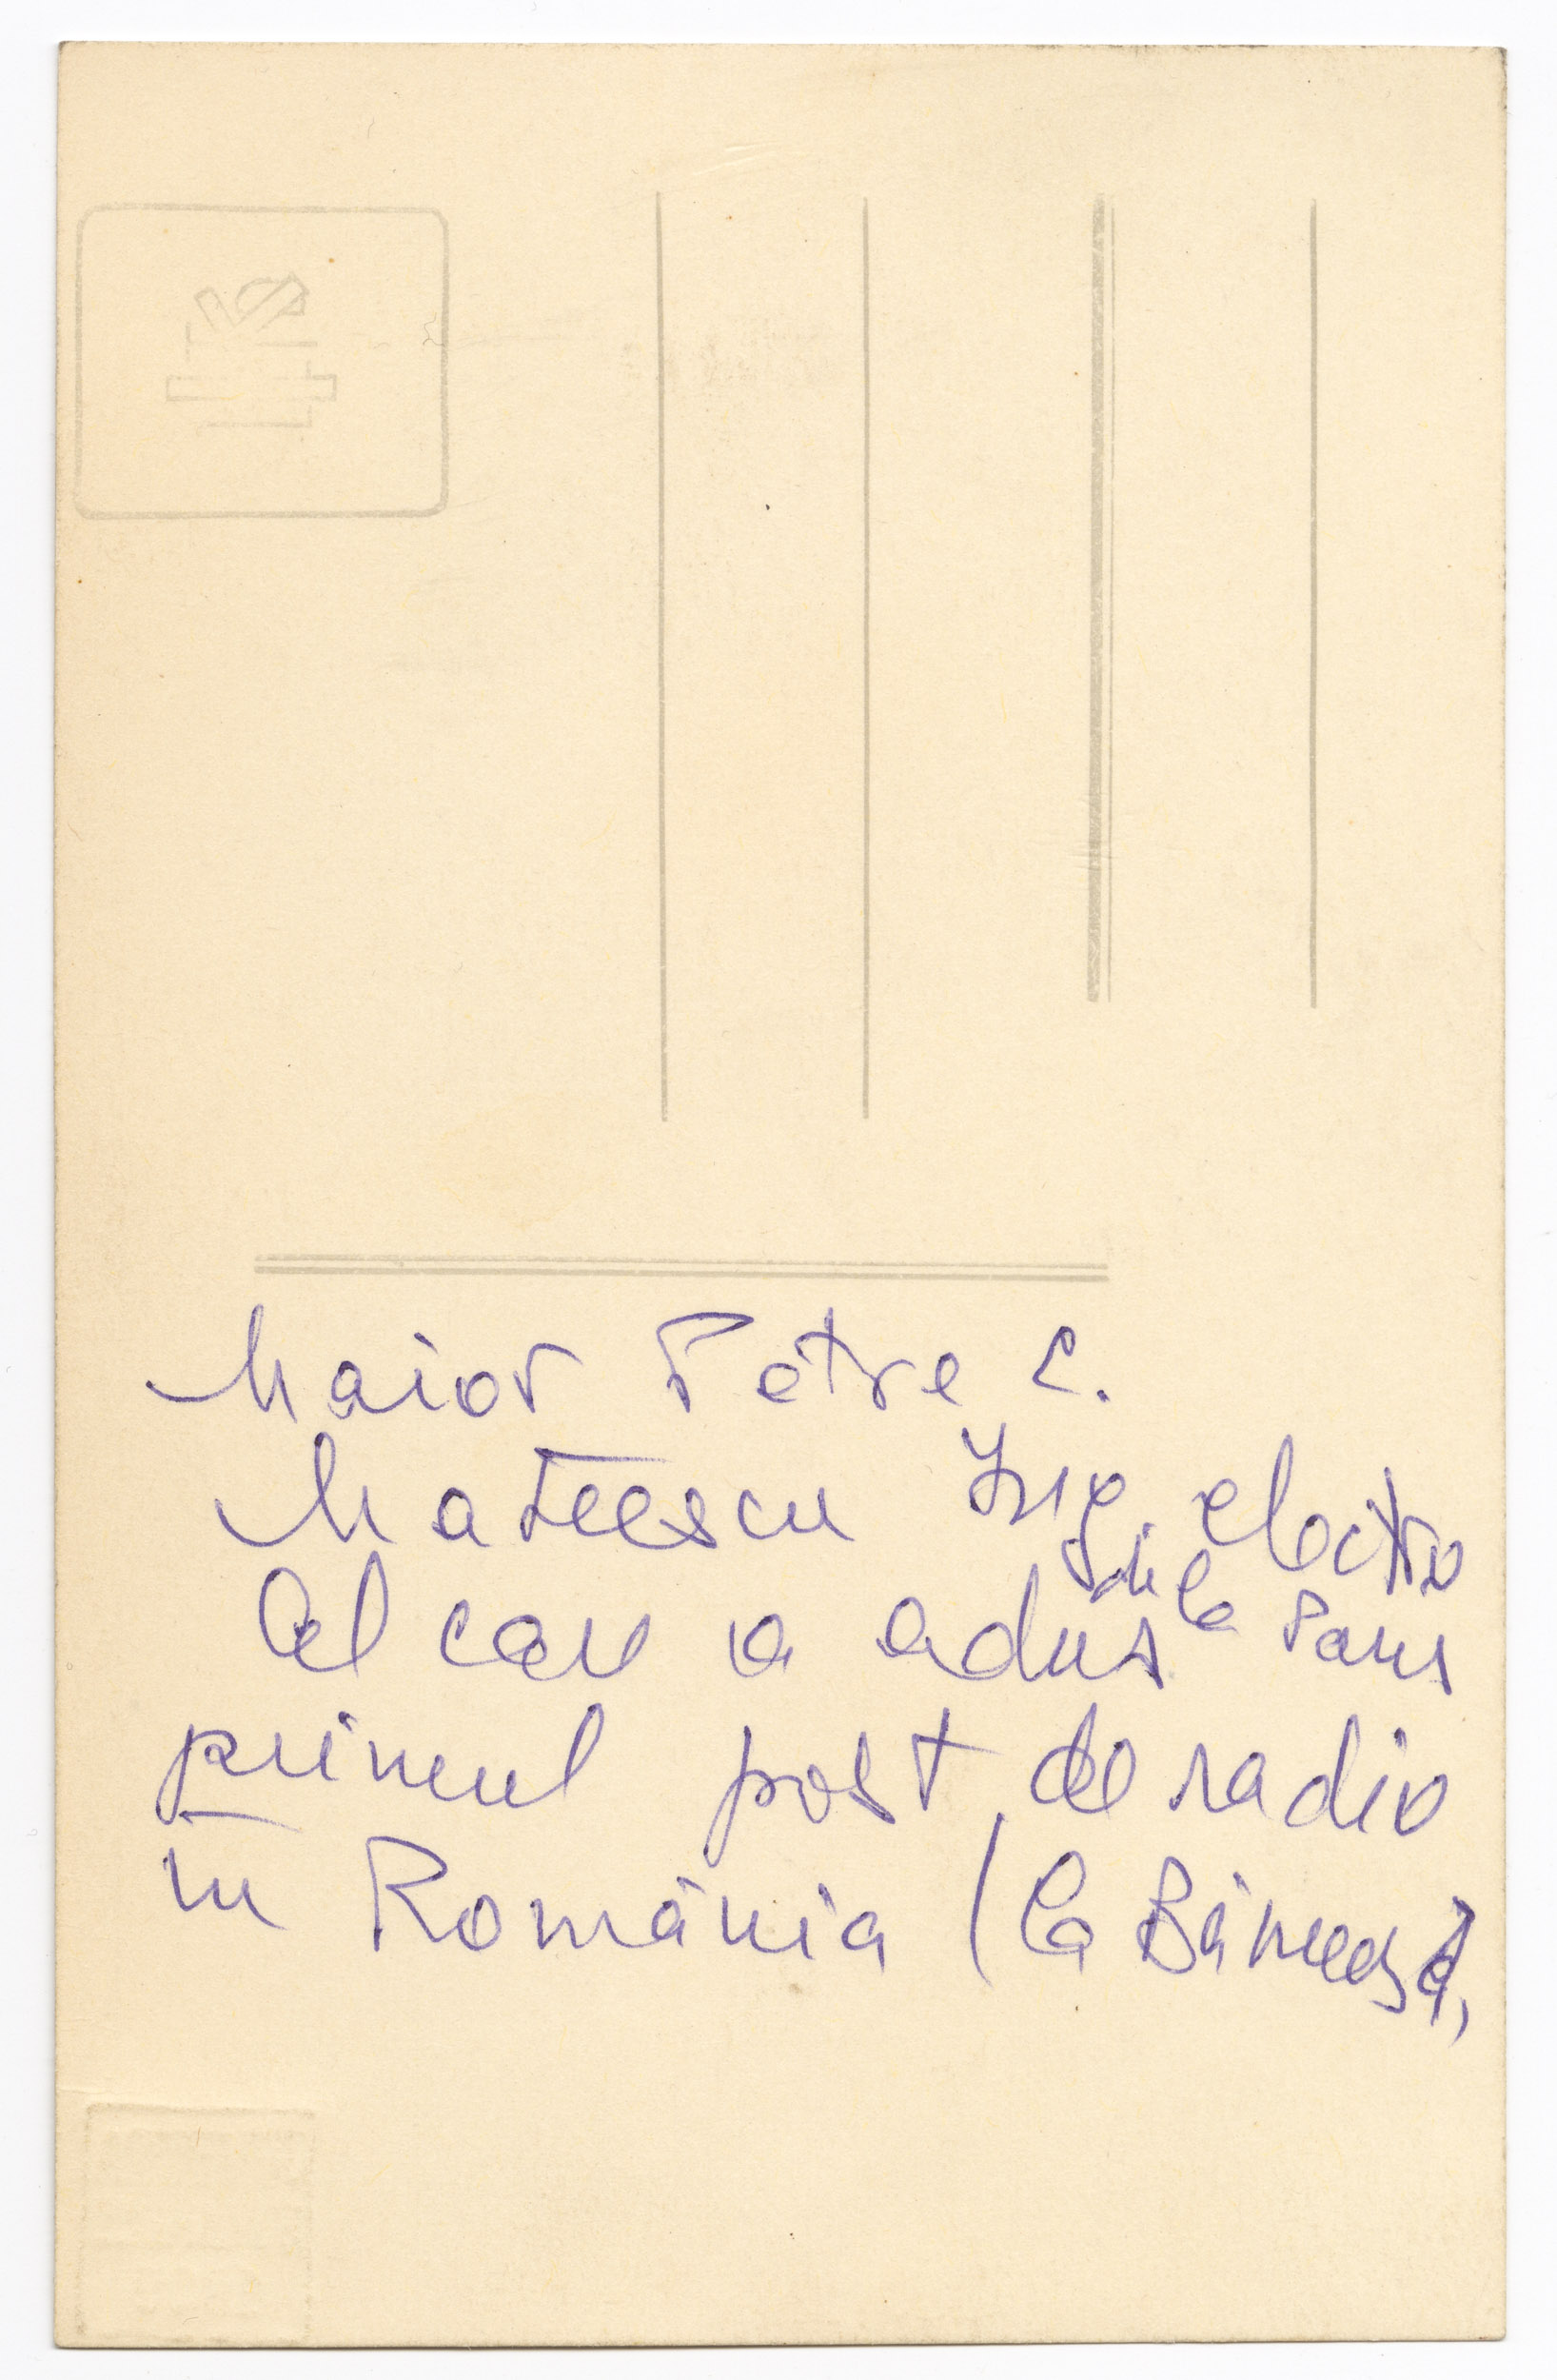 Maior Petre C.
Mateescu Ing. electro
Cel care a adus de la Paris
primul post de radio
în România (la Băneasa,